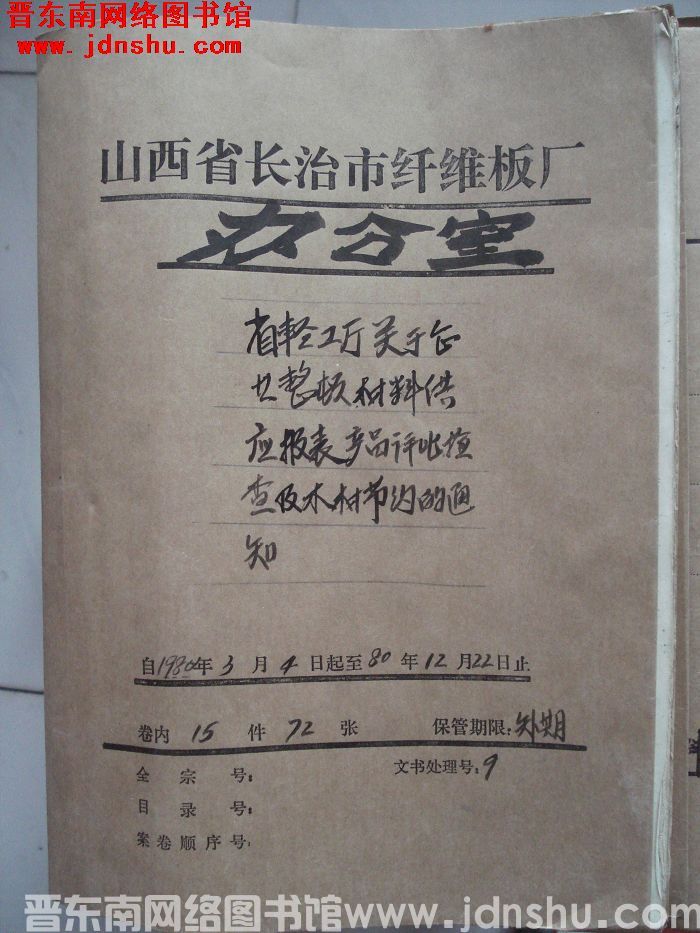 晋东南网络图书馆
www.jdnshu.com
山西省长治市纤维板厂
办公室
省轻工厅关于企
业整顿材料供
应报表产品评比检
查及木材节约的通
知
自1980年3月4日起至80年12月22日止
卷内 15 件 72 张 保管期限:期
全宗号: 文书处理号:9
目录号:
案卷顺序号:
晋东南网络图书馆www.jdnshu.com